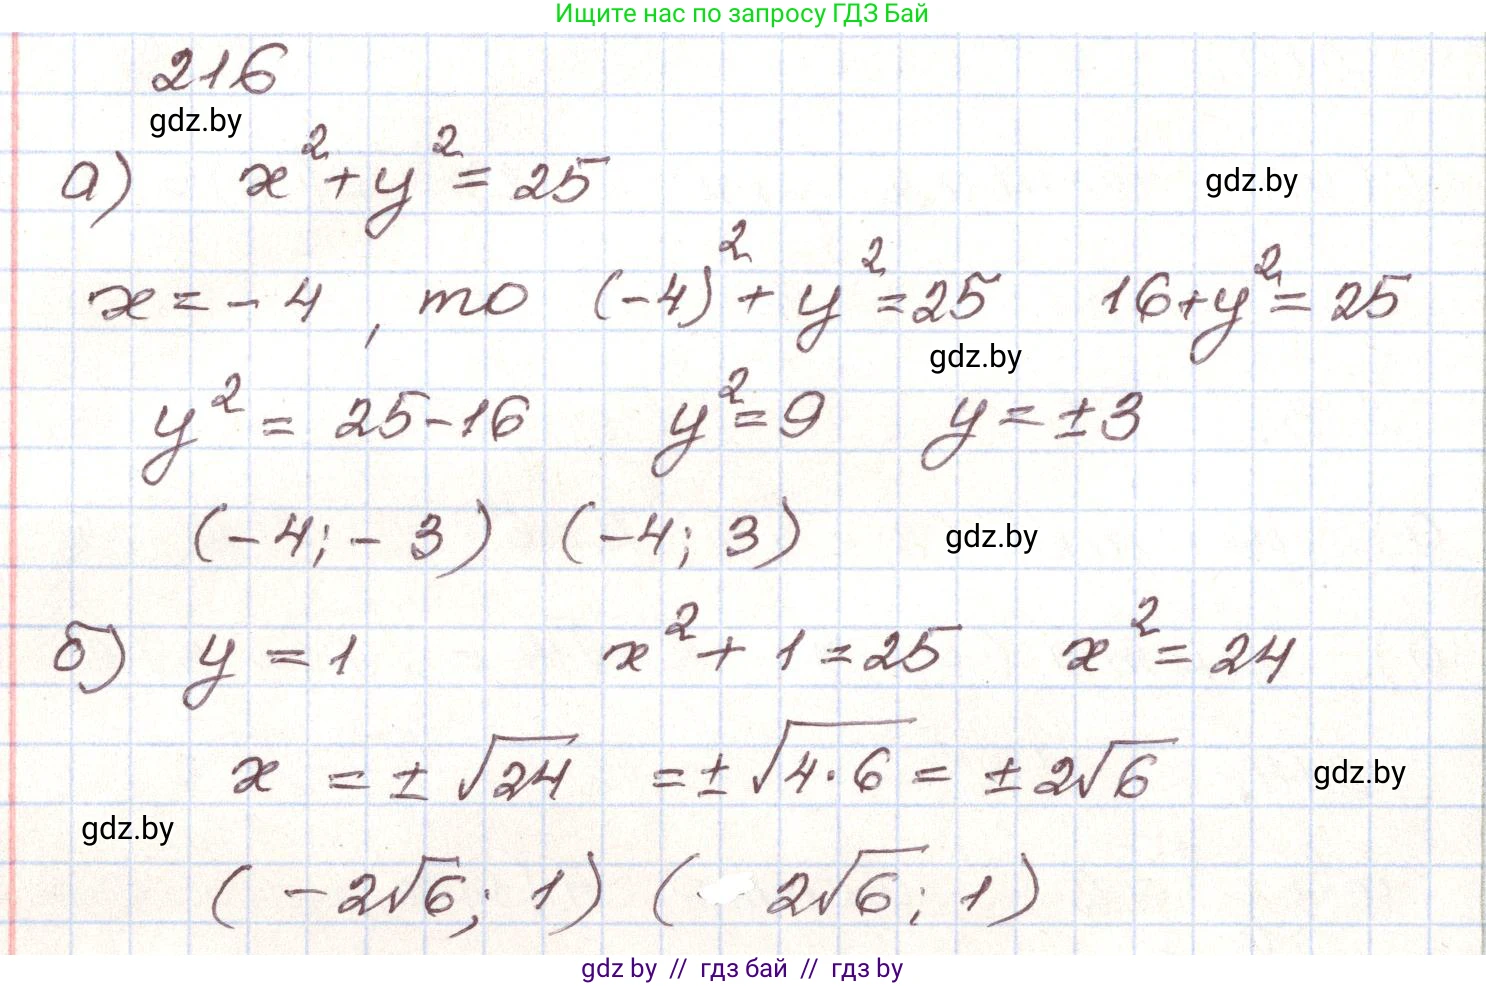 Ищите нас по запросу ГДЗ Бай
216
gdz.by
а) x² + y² = 25
gdz.by
x = - 4 , то (-4)² + y² = 25 16 + y² = 25
gdz.by
y² = 25 - 16 y² = 9 y = ± 3
(- 4; - 3) (- 4; 3)
gdz.by
б) y = 1 x² + 1 = 25 x² = 24
x = ± √24 = ± √4·6 = ± 2√6
gdz.by
gdz.by
(- 2√6; 1) ( 2√6; 1)
gdz by // гдз бай // гдз by